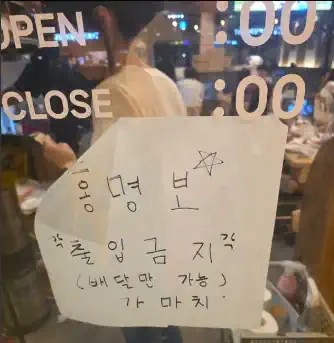 OPEN :00
CLOSE :00
홍명보
각 출입금지 각
(배달만 가능)
가마치